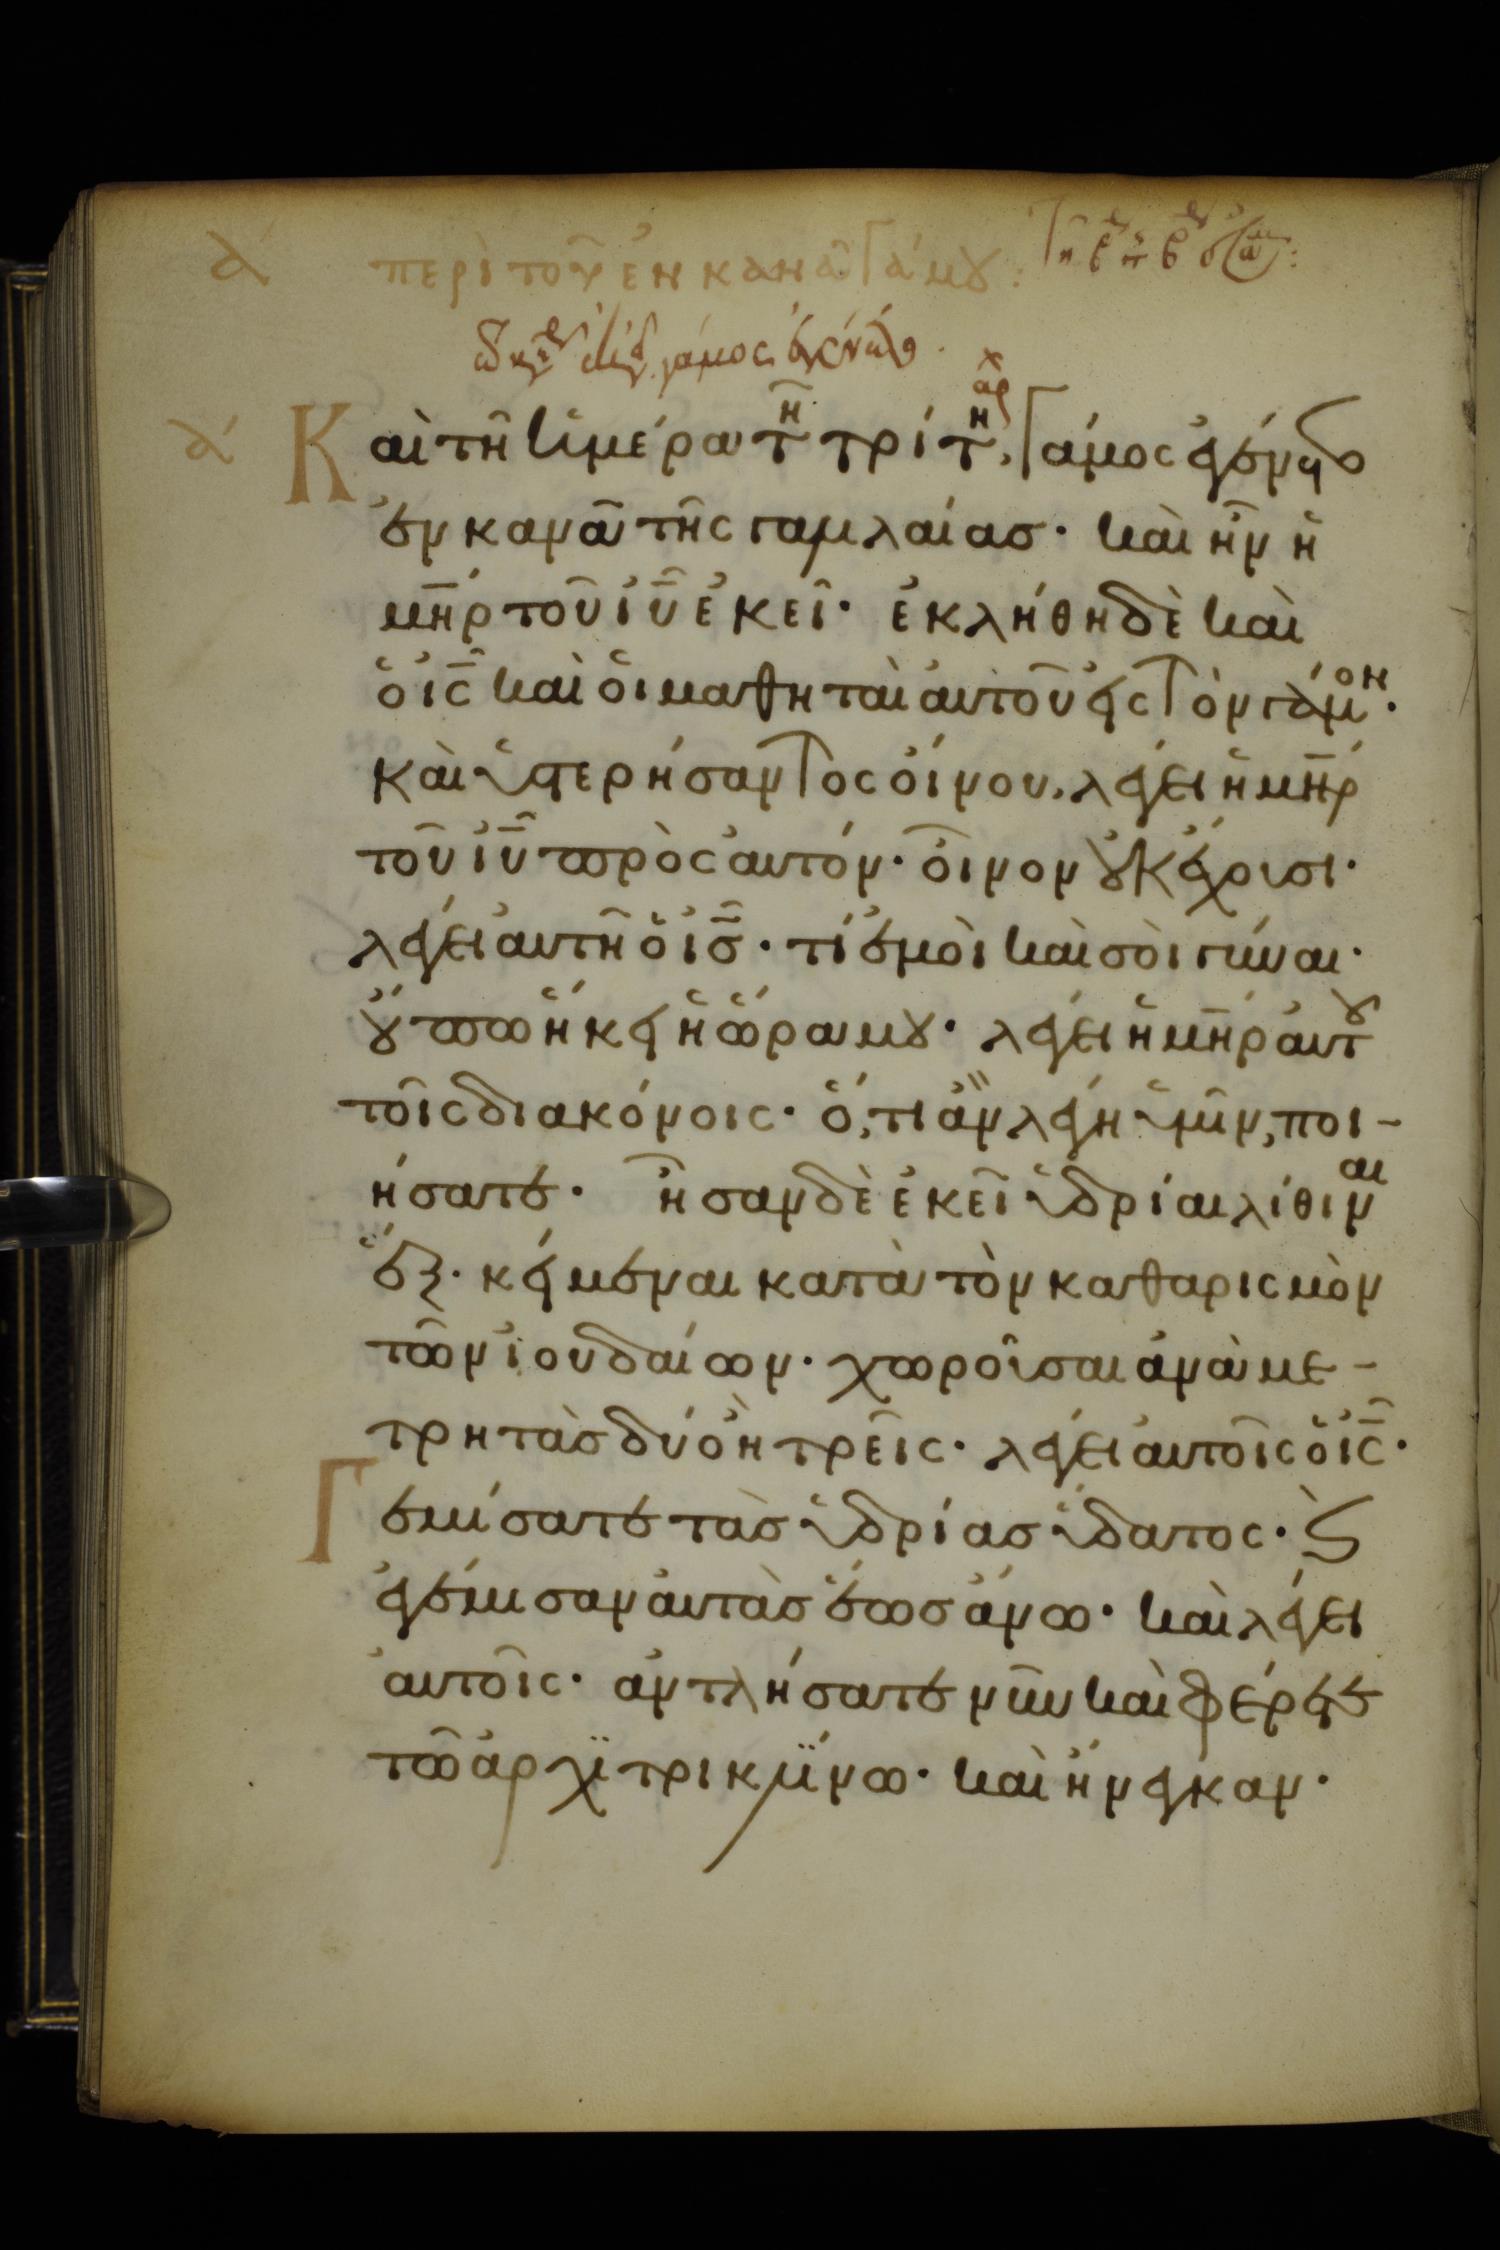 α´ περὶ τοῦ ἐν κανᾶ γάμου:
α´ Καὶ τῆ ἡμέρα τῆ τρίτη, γάμος ἐγένετο
ἐν κανᾶ τῆς γαλιλαίασ· καὶ ἦν ἡ
μη̅ρ τοῦ ἰυ̅ ἐκεῖ· ἐκλήθη δὲ καὶ
ὁ ἰς̅ καὶ ὁι μαθηταὶ ἀυτοῦ ἐις τὸν γάμον·
καὶ ὑστερήσαντος ὀίνου, λέγει ἡ μη̅ρ
τοῦ ἰυ̅ πρὸς ἀυτόν· ὀῖνον οὐκ ἔχουσι·
λέγει ἀυτῆ ὁ ἰσ̅· τί ἐμὸι καὶ σὸι γύναι·
οὔπω ἥκει ἡ ὥρα μου· λέγει ἡ μη̅ρ ἀυτου
τοῖς διακόνοις· ὅ,τι ἂν λέγη ὑμῖν, ποι-
ήσατε· ἦσαν δὲ ἐκεῖ ὑδρίαι λίθιναι
ἕξ· κείμεναι κατὰ τὸν καθαρισμὸν
τῶν ἰουδαίων· χωροῦσαι ἀνὰ με-
τρητὰσ δύο ἢ τρεῖς· λέγει ἀυτοῖς ὁ ἰς̅·
Γεμίσατε τὰσ ὑδρίασ ὕδατος· ϗ
ἐγέμισαν ἀυτὰσ ἕωσ ἄνω· καὶ λέγει
ἀυτοῖς· ἀντλήσατε νῦν καὶ φέρετε
τῶ ἀρχϊτρικλίνω· καὶ ἤνεγκαν·